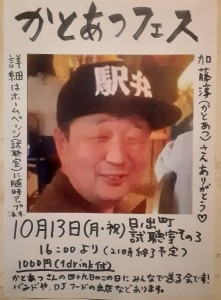 かとあつフェス
加藤淳(かとあつ)さんありがとう♡
詳細はホームページ(試聴室)に随時アップします。
駅弁
10月13日(月・祝)
日ノ出町
試聴室その3
16:00より(21時終了予定)
1000円(1drink付)
かとあつさんの四十九日のこの日にみんなで送る会です!
バンドや、DJ、フードの出店などあります。